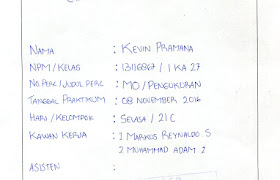 NAMA : KEVIN PRAMANA
NPM/KELAS : 13116867 / 1 KA 27
NO.PERC/JUDUL PERC : M0/PENGUKURAN
TANGGAL PRAKTIKUM : 08 NOVEMBER 2016
HARI/KELOMPOK : SELASA / 21 C
KAWAN KERJA : 1 MARKUS REYNALDO S
2 MUHAMMAD ADAM J
ASISTEN :